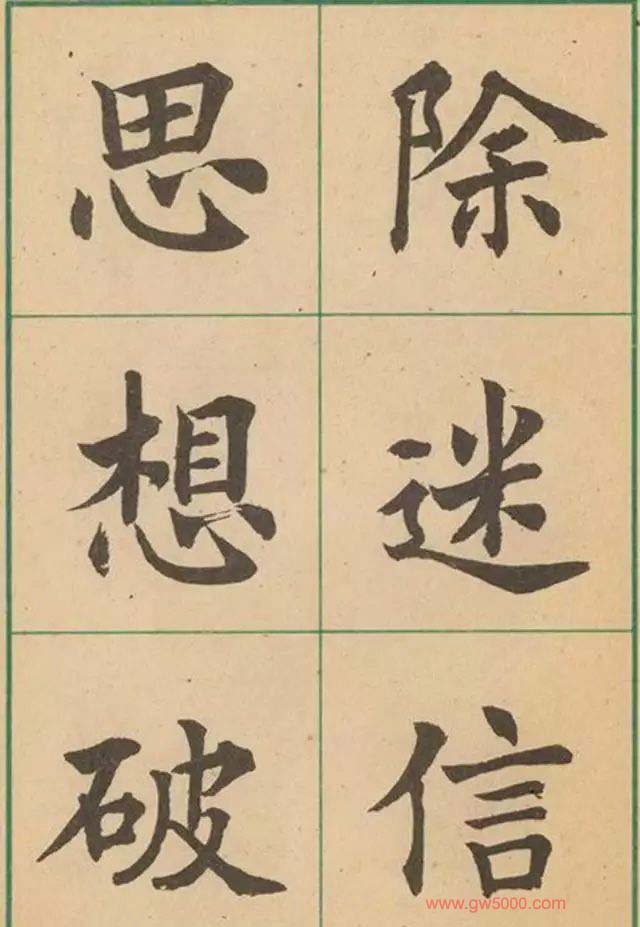 思想破
除迷信
www.gw5000.com